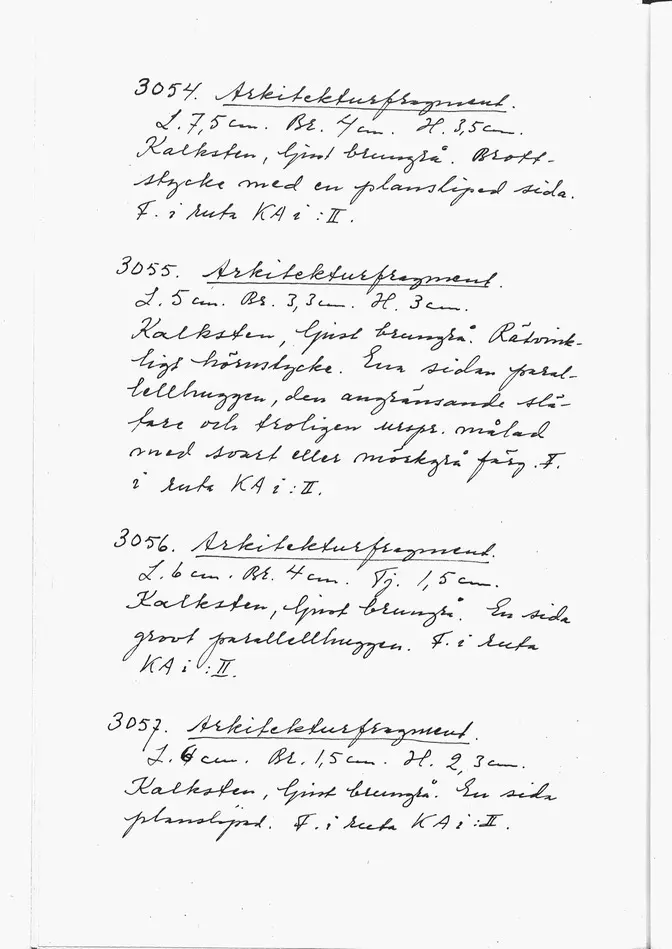 3054. Arkitekturfragment.
L. 7,5 cm. Br. 4 cm. H. 3,5 cm.
Kalksten, ljust brungrå. Brott-
stycke med en planslipad sida.
F. i ruta KA i : II.
3055. Arkitekturfragment.
L. 5 cm. Br. 3,3 cm. H. 3 cm.
Kalksten, ljust brungrå. Rätvink-
ligt hörnstycke. Ena sidan paral-
lellhuggen, den angränsande slä-
tare och troligen urspr. målad
med svart eller mörkgrå färg. F.
i ruta KA i : II.
3056. Arkitekturfragment.
L. 6 cm. Br. 4 cm. Tj. 1,5 cm.
Kalksten, ljust brungrå. En sida
grovt parallellhuggen. F. i ruta
KA i : II.
3057. Arkitekturfragment.
L. 6 cm. Br. 1,5 cm. H. 2,3 cm.
Kalksten, ljust brungrå. En sida
planslipad. F. i ruta KA i : II.